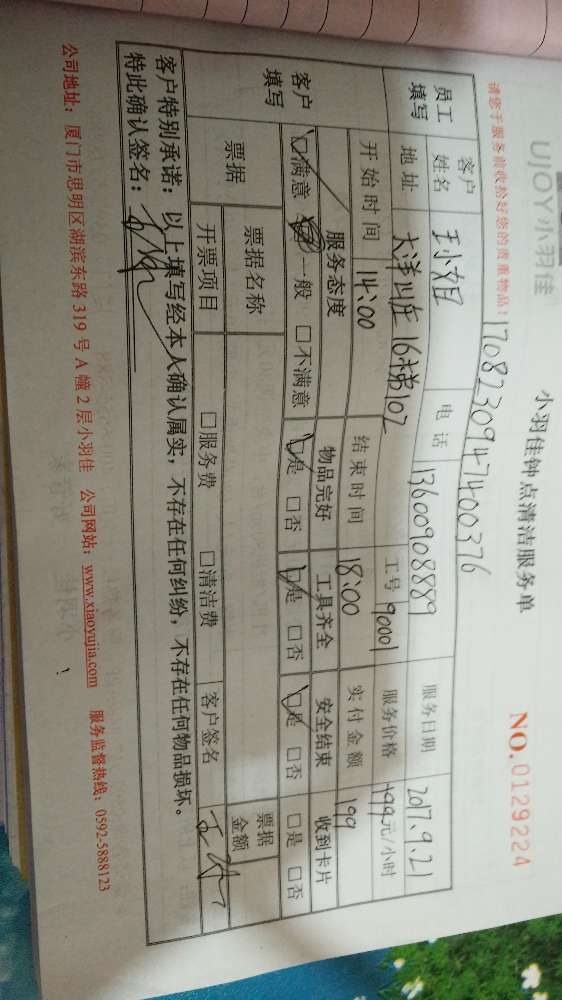 UJOY小羽佳
小羽佳钟点清洁服务单
NO.0129224
请您于服务前收拾好您的贵重物品！
1708230947400376
员工填写 客户姓名 王小姐 电话 13600908889 服务日期 2017.9.21
地址 大洋山庄16梯102 工号 9001 服务价格 199元/小时
开始时间 14:00 结束时间 18:00 实付金额 199
客户填写 服务态度 物品完好 工具齐全 安全结束 收到卡片
□满意 □一般 □不满意 □是 □否 □是 □否 □是 □否 □是 □否
票据 票据名称 票据金额
开票项目 □服务费 □清洁费 客户签名
客户特别承诺：以上填写经本人确认属实，不存在任何纠纷，不存在任何物品损坏。
特此确认签名：
公司地址：厦门市思明区湖滨东路319号A幢2层小羽佳 公司网站：www.xiaoyujia.com 服务监督热线：0592-5888123